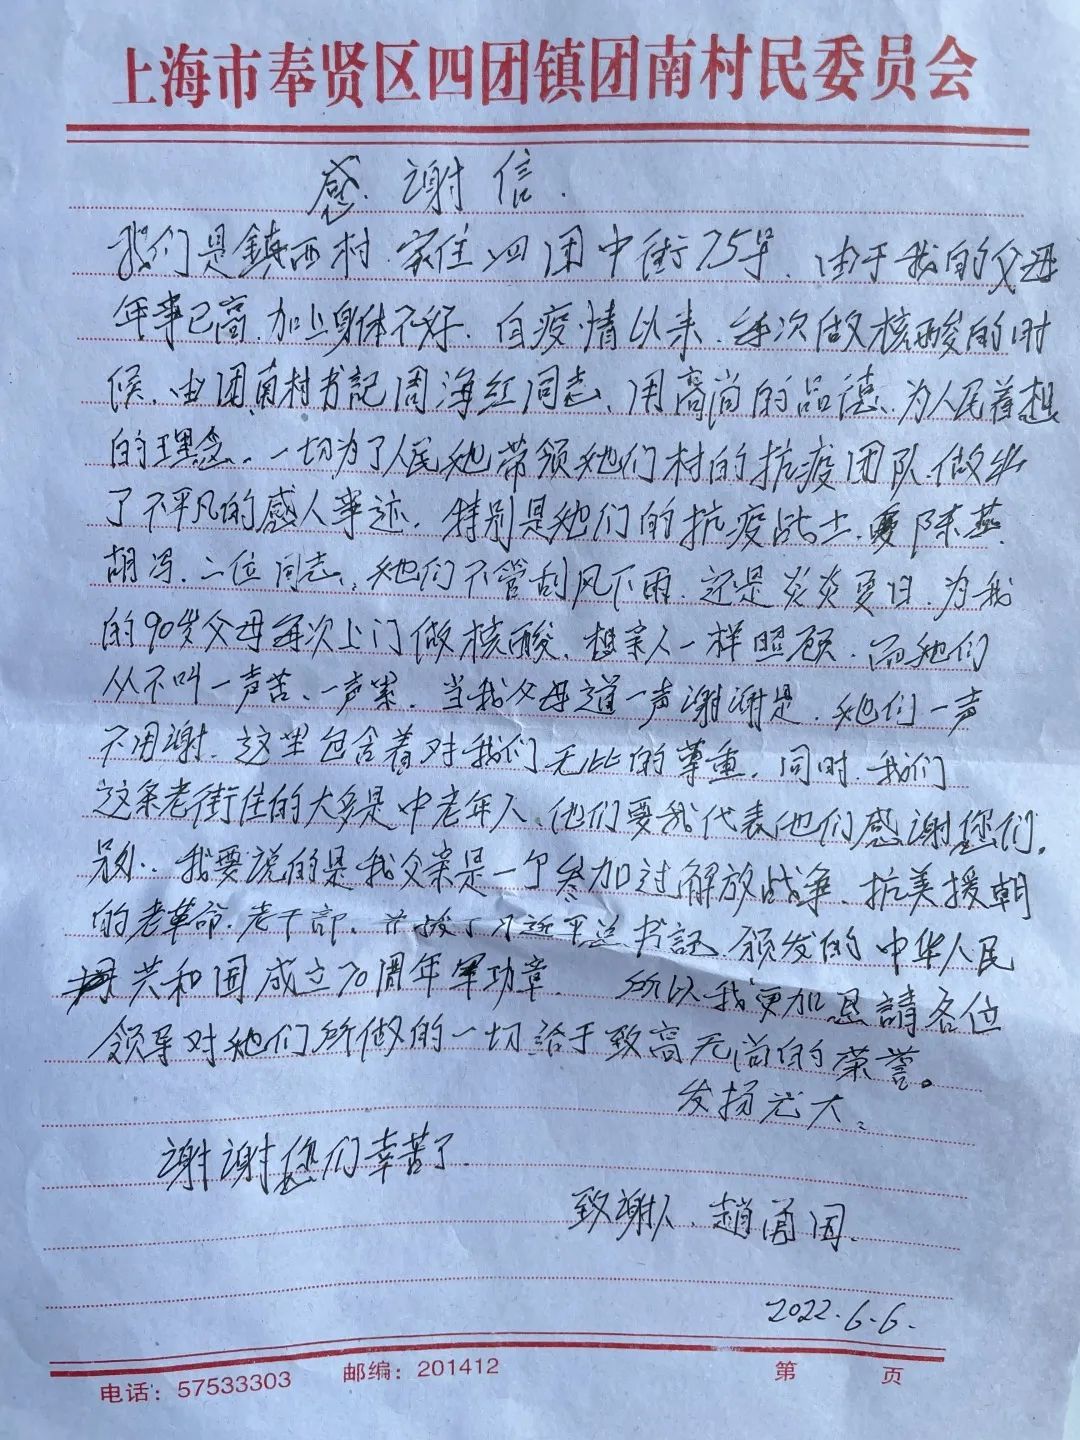 上海市奉贤区四团镇团南村民委员会
感谢信.
我们是鎮西村.家住四团中街75号、由于我的父母
年事已高.加上身体不好.自疫情以来.每次做核酸的时
候、由团南村书記周海红同志、用高尚的品德、为人民着想
的理念、一切为了人民她带领她们村的抗疫团队.做出
了不平凡的感人事迹.特别是她们的抗疫战士.陈燕.
胡冯.二位同志、她们不管刮风下雨.还是炎炎夏日.为我
的90岁父母每次上门做核酸、想亲人一样照顾.而她们
从不叫一声苦.一声累.当我父母道一声谢谢是.她们一声
不用谢.这里包含着对我们无比的尊重.同时.我们
这条老街住的大多是中老年人、他们要我代表他们感谢您们.
另外.我要说的是我父亲是一个参加过解放战争、抗美援朝
的老革命.老干部.并了习近平总书記.颁发的中华人民
共和国成立70周年軍功章.所以我更加恳請各位
领导对她们所做的一切给于致高无尚的荣誉。
发扬光大、
谢谢您们幸苦了.
致谢人、趙甬国.
2022.6.6.
电话：57533303 邮编：201412 第 页